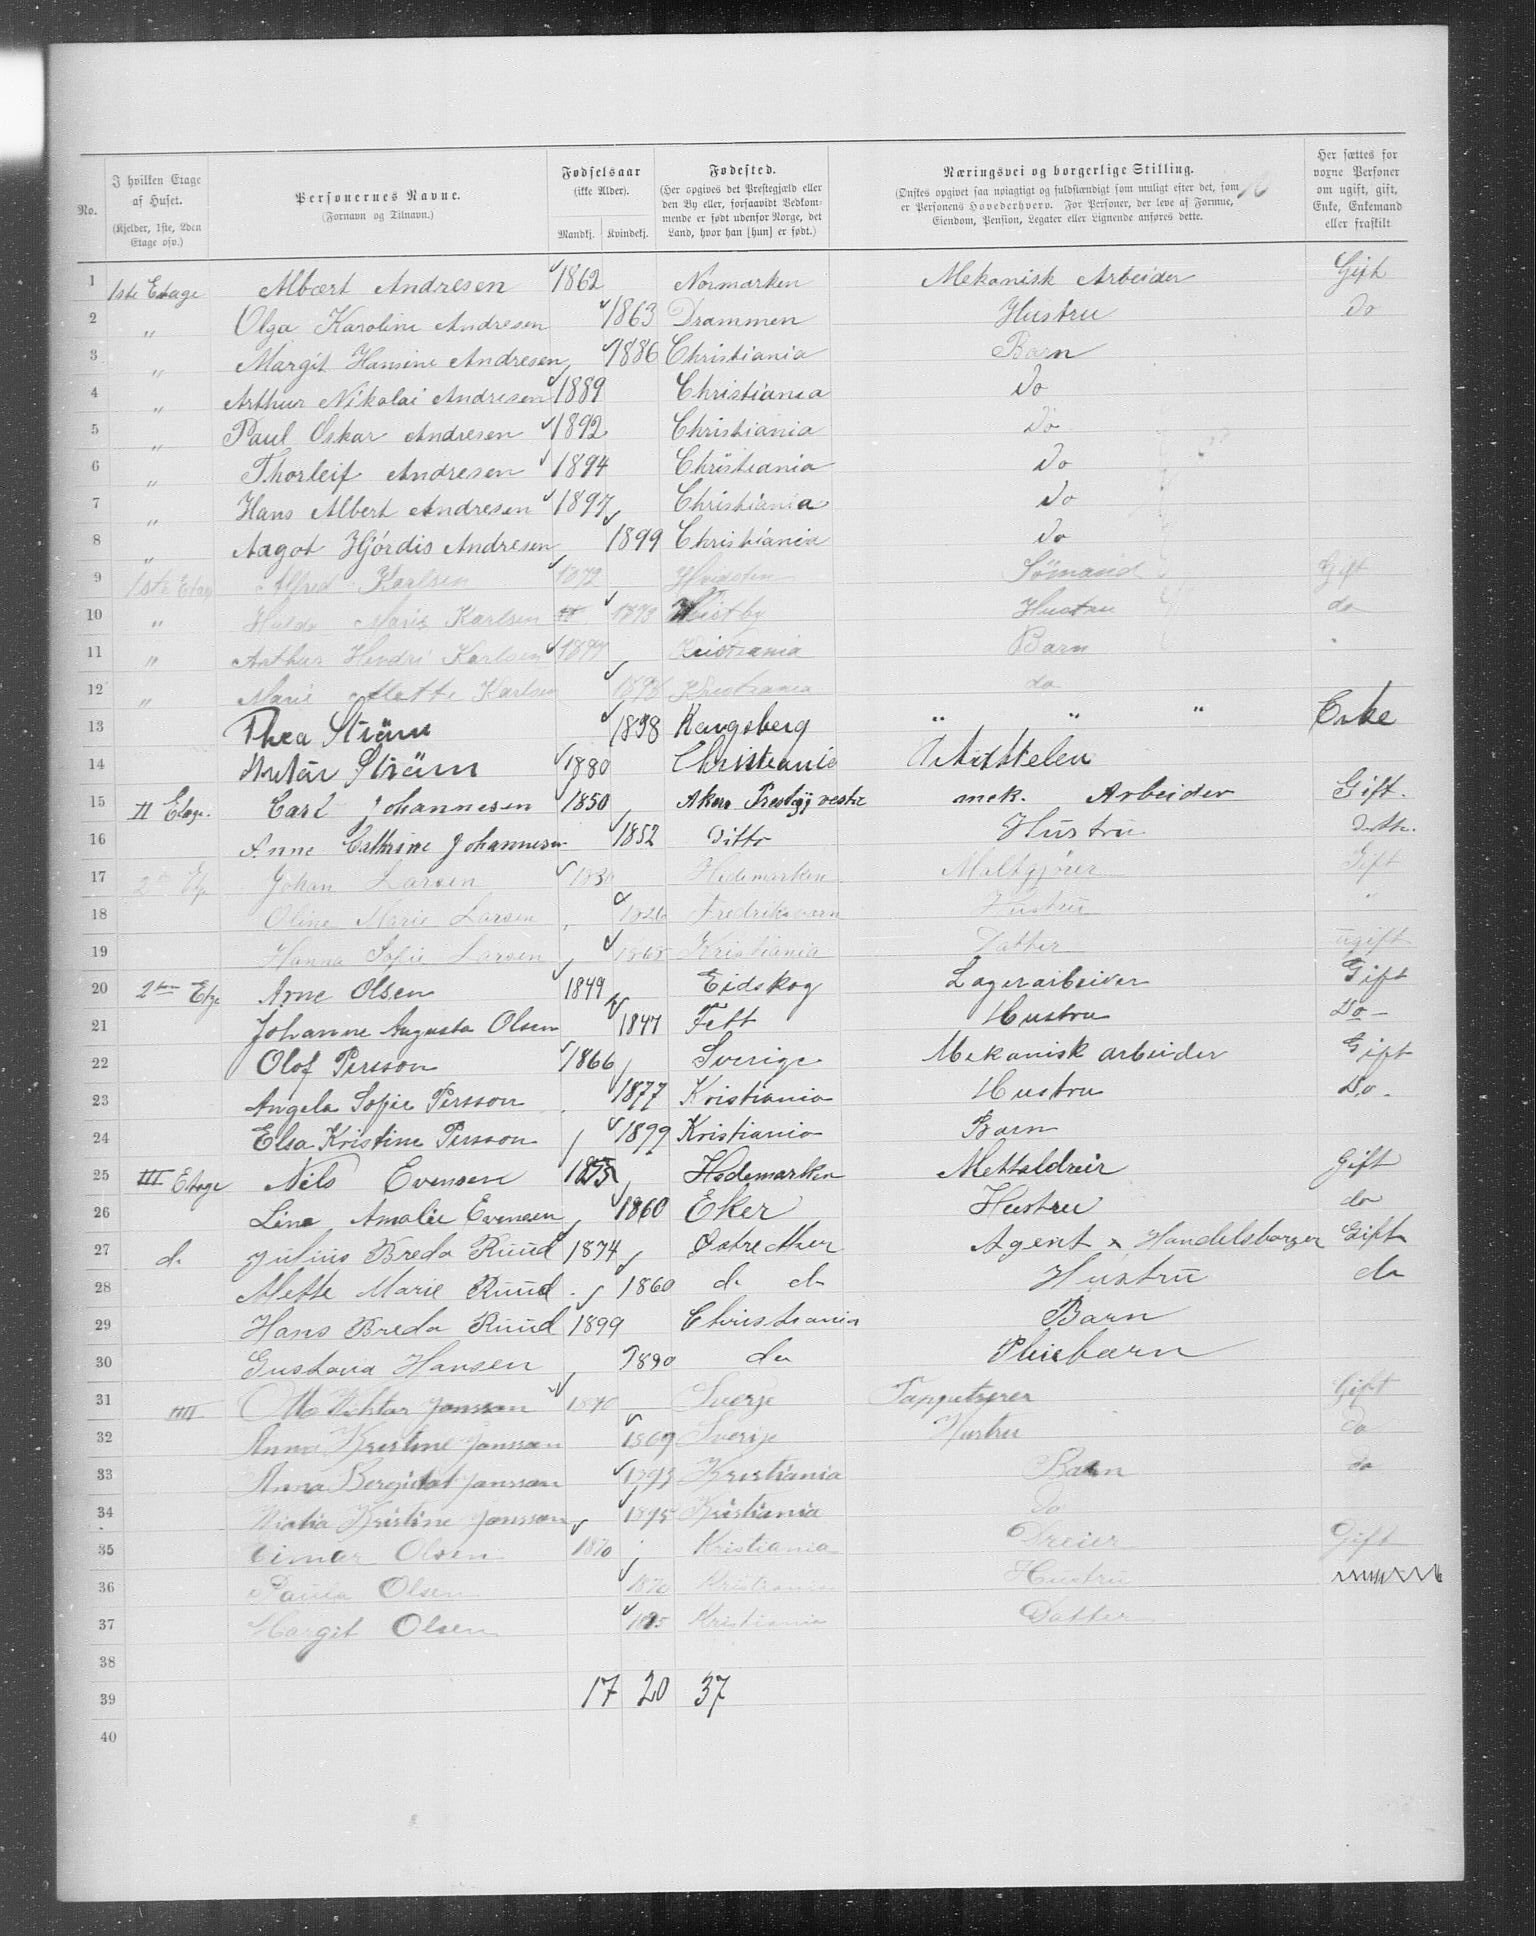 No. I hvilken Etage af Huset. (Kjelder, 1ste, 2den Etage osv.) Personernes Navne. (Fornavn og Tilnavn.) Fødselsaar (ikke Alder). Mandkj. Kvindekj. Fødested. (Her opgives det Prestegjæld eller den By eller, forsaavidt Vedkommende er født udenfor Norge, det Land, hvor han [hun] er født.) Næringsvei og borgerlige Stilling. (Ønskes opgivet saa nøiagtigt og fuldstændigt som muligt efter det, som er Personens Hovederhverv. For Personer, der leve af Formue, Eiendom, Pension, Legater eller Lignende anføres dette. Her sættes for voxne Personer om ugift, gift, Enke, Enkemand eller fraskilt
1 1ste Etage Albert Andresen 1862 Normarken Mekanisk Arbeider Gift
2 " Olga Karoline Andresen 1863 Drammen Hustru Do
3 " Margit Hansine Andresen 1886 Christiania Barn
4 " Arthur Nikolai Andresen 1889 Christiania Do
5 " Paul Oskar Andresen 1892 Christiania Do
6 " Thorleif Andresen 1894 Christiania Do
7 " Hans Albert Andresen 1897 Christiania Do
8 " Aagot Hjórdis Andresen 1899 Christiania Do
9 1ste Etage Alfred Karlsen 1872 Hvidsten Sömand Gift
10 " Hulda Marie Karlsen 1873 Hustru do
11 " Arthur Hendri Karlsen 1897 Kristiania Barn
12 " Marie Mette Karlsen Khristiania do
13 Thea Ström 1838 Kongsberg " " " Enke
14 Ström 1880 Christiania
15 II Etage. Carl Johannesen 1850 Akers Prestgj vestre mek. Arbeider Gift.
16 Anne Cathrine Johannesen 1852 Ditto Hustru Ditto.
17 2den Etg Johan Larsen 1830 Hedemarken Maltgjører Gift
18 Oline Marie Larsen 1826 Fredriksværn Hustru "
19 Hanna Sofie Larsen 1865 Kristiania Datter ugift
20 2den Etge Arne Olsen 1849 Eidskog Lagerarbeider Gift
21 Johanne Augusta Olsen 1847 Fett Hustru Do -
22 Olof Persson 1866 Sverige Mekanisk arbeider Gift
23 Angela Sofie Persson 1877 Kristiania Hustru Do.
24 Elsa Kristine Persson 1899 Kristiania Barn
25 III Etage Nils Evensen 1875 Hedemarken Mettaldreier Gift
26 Line Amalie Evensen 1860 Eker Hustru do
27 d. Julius Breda Ruud 1874 Østre Agent & Handelsborger Gift
28 Mette Marie Ruud 1860 d. d. Hustru do
29 Hans Breda Ruud 1899 Christiania Barn
30 Gustava Hansen 1890 do Pleiebarn
31 IIII Otto Viktor Jonsson 1870 Sverje Tapetserer Gift
32 Anna Kristine Jonsson 1869 Sverije Hustru Do
33 Anna Jonsson 1893 Kristiania Barn do
34 Kristine Jonsson 1895 Kristiania Do
35 Einar Olsen 1870 Kristiania Dreier Gift
36 Paula Olsen 1870 Kristiania Hustru
37 Margit Olsen 1895 Kristiania Datter
38
39 17 20 37
40